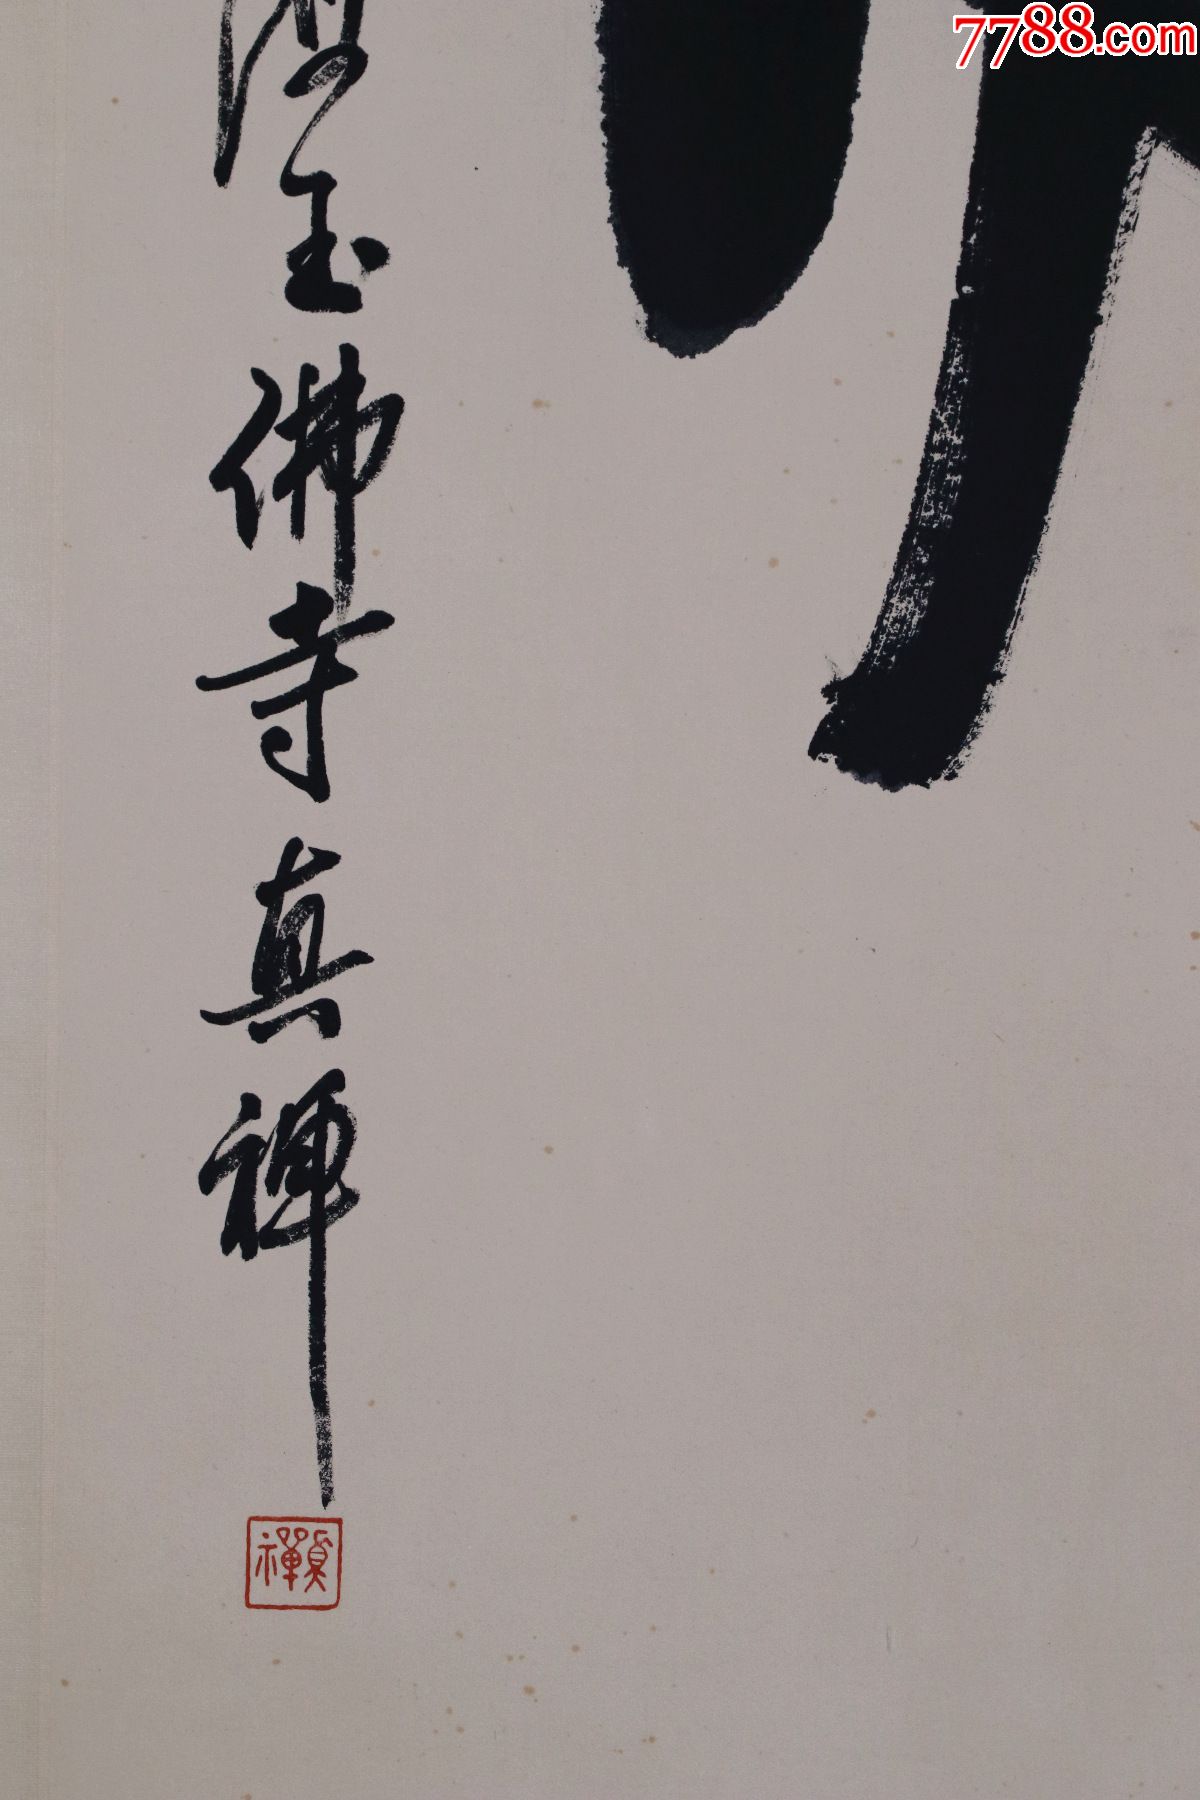 7788.com
玉佛寺真禪
真禪